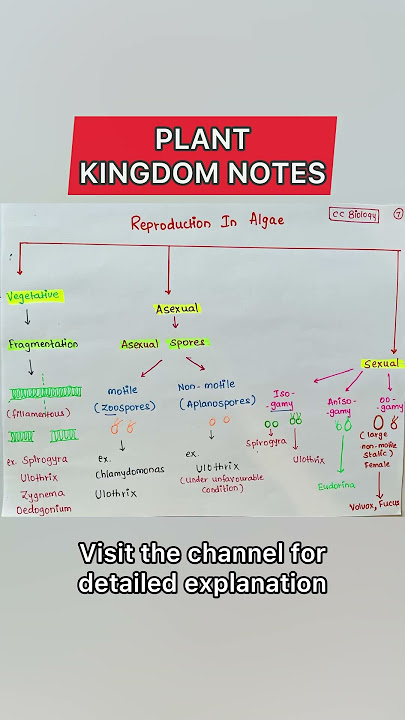 PLANT
KINGDOM NOTES
CC Biology
7
Reproduction In Algae
Vegetative
Fragmentation
(fillamentous)
ex. Spirogyra
Ulothrix
Zygnema
Oedogonium
Asexual
Asexual Spores
motile
(Zoospores)
ex.
Chlamydomonas
Ulothrix
Non-motile
(Aplanospores)
ex.
Ulothrix
(Under unfavourable
condition)
Sexual
Iso-
gamy
Spirogyra
Ulothrix
Aniso-
gamy
Eudorina
oo-
gamy
(large
non-motile
static)
Female
Volvox, Fucus
Visit the channel for
detailed explanation